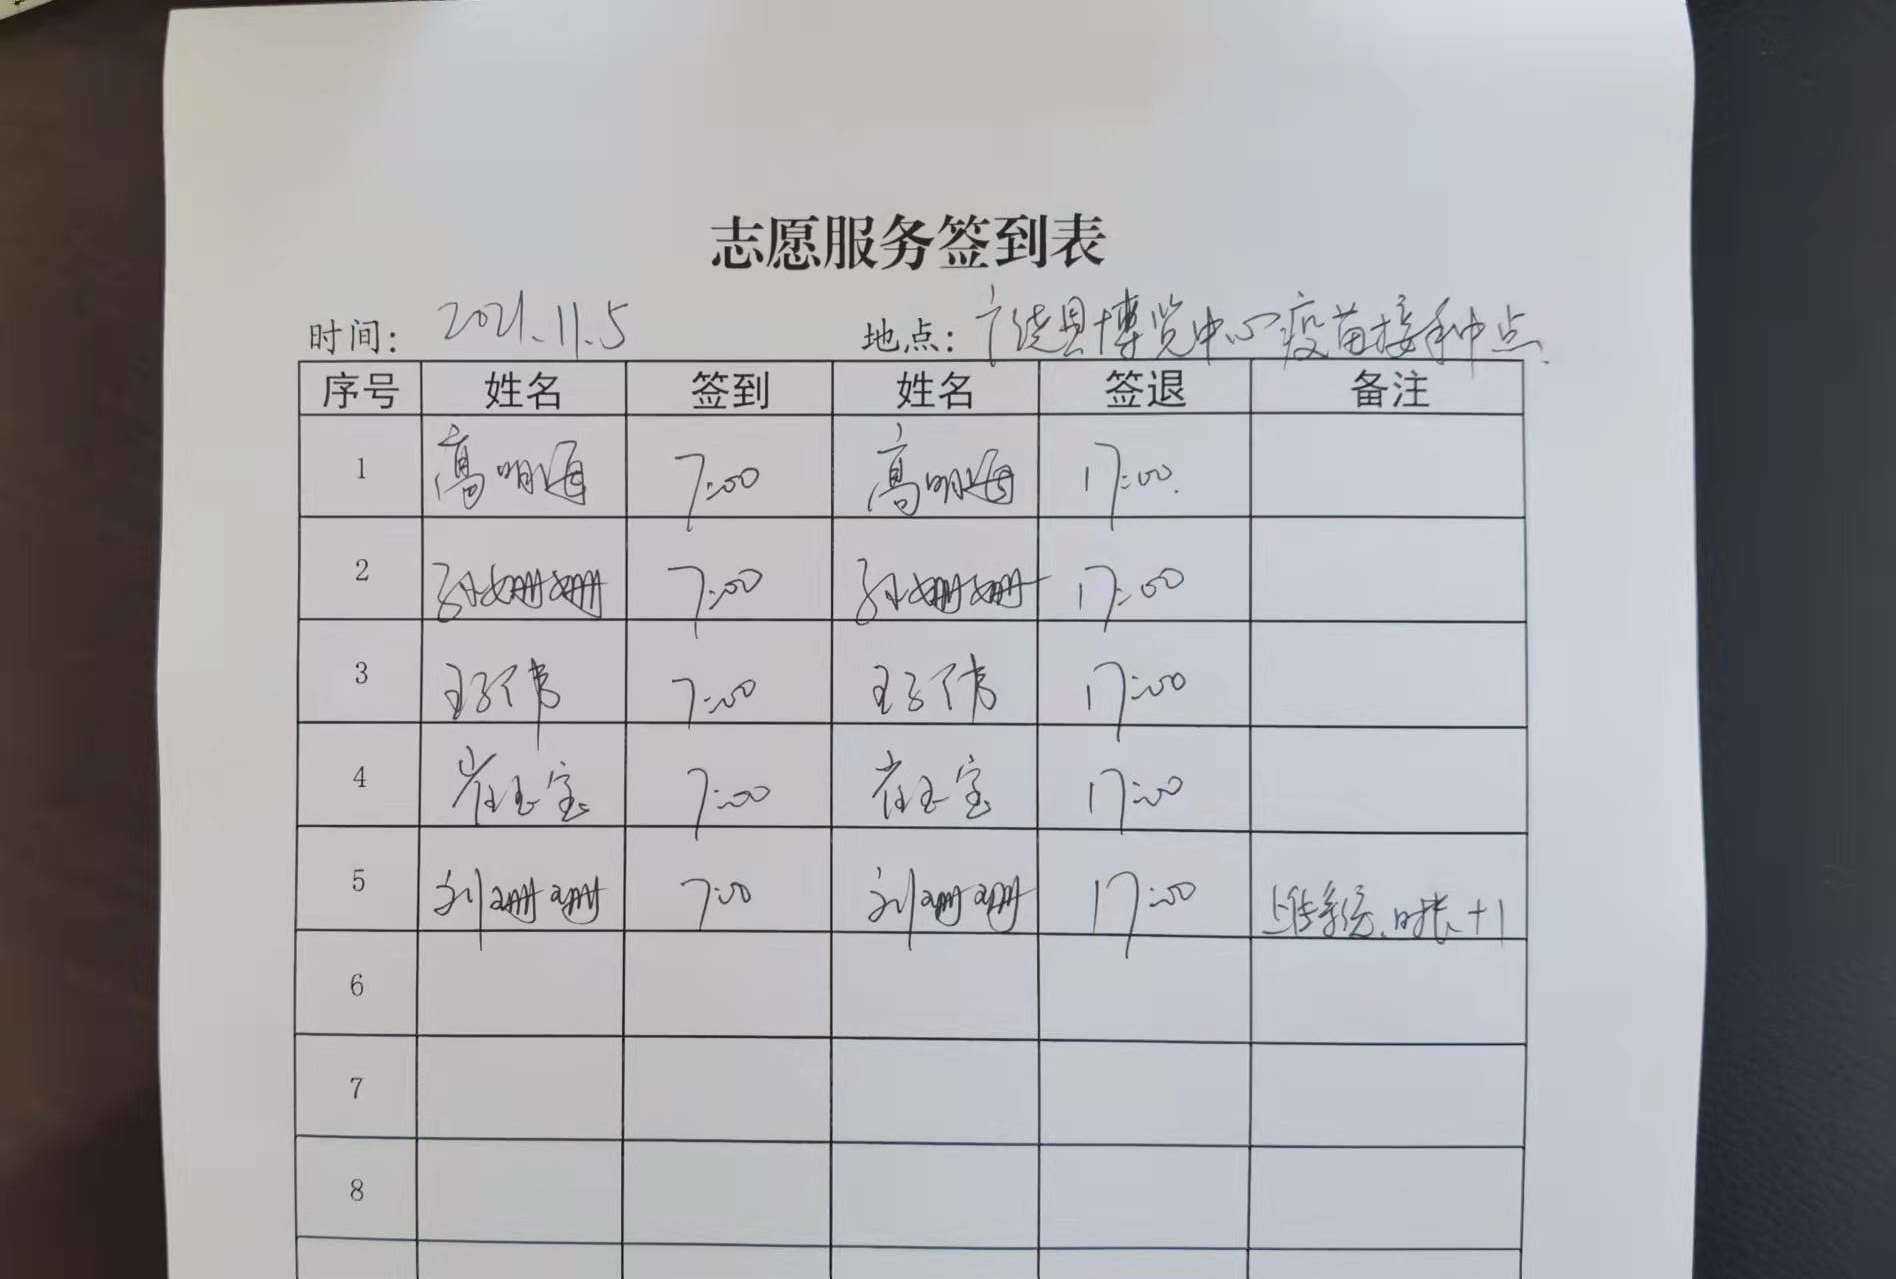 志愿服务签到表
时间: 2021.11.5 地点: 广饶县博览中心疫苗接种点.
序号 姓名 签到 姓名 签退 备注
1 高明海 7:00 高明海 17:00.
2 孙姗姗 7:00 孙姗姗 17:00
3 王子伟 7:00 王子伟 17:00
4 崔玉宝 7:00 崔玉宝 17:00
5 刘珊珊 7:00 刘珊珊 17:00 上传系统、时长+1
6
7
8